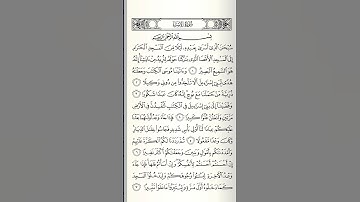 سُورَةُ الإِسْرَاءِ
بِسْمِ اللَّهِ الرَّحْمَٰنِ الرَّحِيمِ
سُبْحَٰنَ الَّذِي أَسْرَىٰ بِعَبْدِهِ لَيْلًا مِّنَ الْمَسْجِدِ الْحَرَامِ
إِلَى الْمَسْجِدِ الْأَقْصَا الَّذِي بَٰرَكْنَا حَوْلَهُ لِنُرِيَهُ مِنْ ءَايَٰتِنَا إِنَّهُ
هُوَ السَّمِيعُ الْبَصِيرُ ١ وَءَاتَيْنَا مُوسَى الْكِتَٰبَ وَجَعَلْنَٰهُ
هُدًى لِّبَنِي إِسْرَٰٓءِيلَ أَلَّا تَتَّخِذُوا مِن دُونِي وَكِيلًا ٢
ذُرِّيَّةَ مَنْ حَمَلْنَا مَعَ نُوحٍ إِنَّهُ كَانَ عَبْدًا شَكُورًا ٣
وَقَضَيْنَا إِلَىٰ بَنِي إِسْرَٰٓءِيلَ فِي الْكِتَٰبِ لَتُفْسِدُنَّ فِي الْأَرْضِ
مَرَّتَيْنِ وَلَتَعْلُنَّ عُلُوًّا كَبِيرًا ٤ فَإِذَا جَاءَ وَعْدُ أُولَىٰهُمَا بَعَثْنَا
عَلَيْكُمْ عِبَادًا لَّنَا أُولِي بَأْسٍ شَدِيدٍ فَجَاسُوا خِلَٰلَ الدِّيَارِ
وَكَانَ وَعْدًا مَّفْعُولًا ٥ ثُمَّ رَدَدْنَا لَكُمُ الْكَرَّةَ عَلَيْهِمْ
وَأَمْدَدْنَٰكُم بِأَمْوَٰلٍ وَبَنِينَ وَجَعَلْنَٰكُمْ أَكْثَرَ نَفِيرًا ٦
إِنْ أَحْسَنتُمْ أَحْسَنتُمْ لِأَنفُسِكُمْ وَإِنْ أَسَأْتُمْ فَلَهَا فَإِذَا جَاءَ
وَعْدُ الْآخِرَةِ لِيَسُئُوا وُجُوهَكُمْ وَلِيَدْخُلُوا الْمَسْجِدَ
كَمَا دَخَلُوهُ أَوَّلَ مَرَّةٍ وَلِيُتَبِّرُوا مَا عَلَوْا تَتْبِيرًا ٧